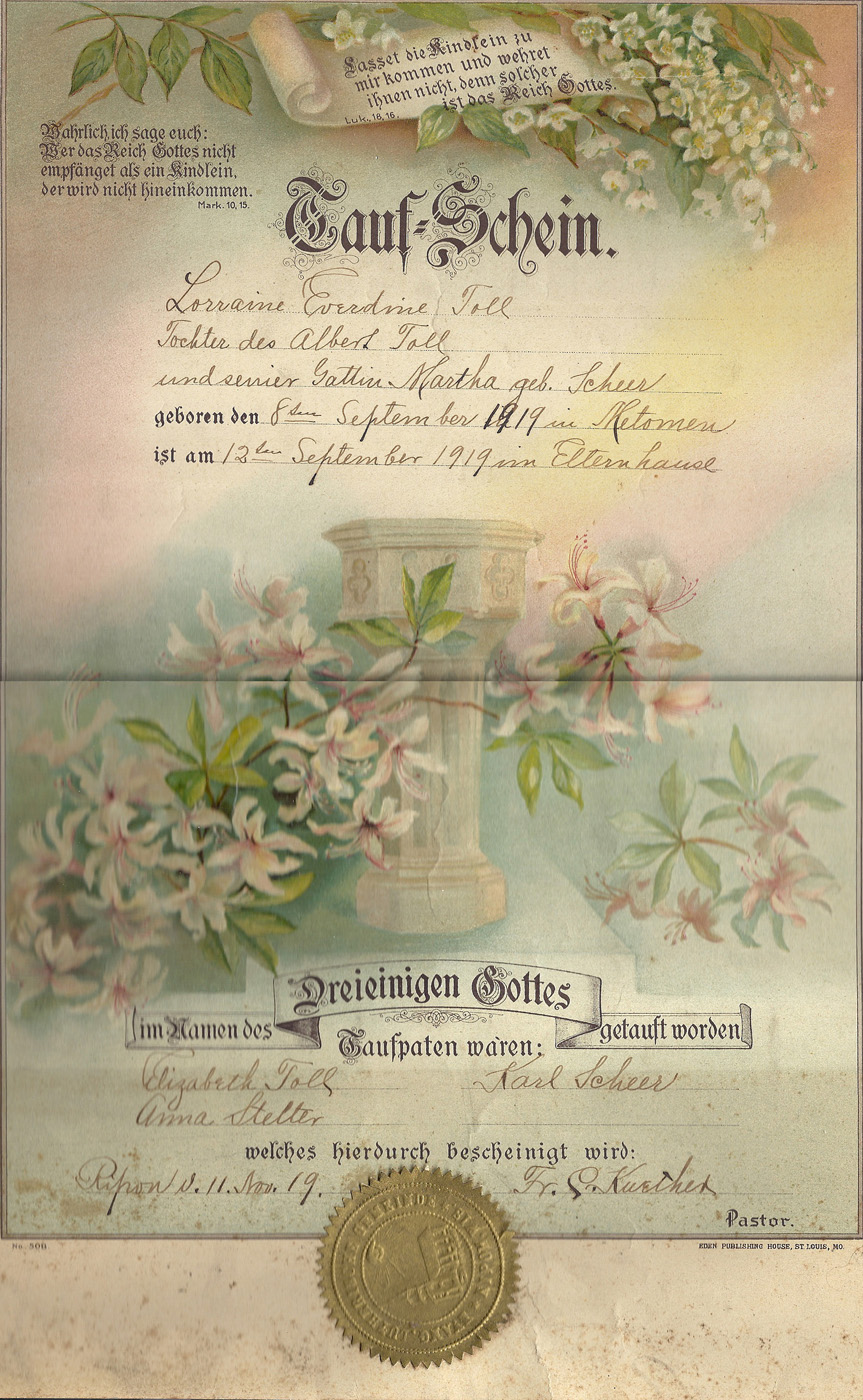 Lasset die Kindlein zu
mir kommen und wehret
ihnen nicht, denn solcher
ist das Reich Gottes.
Luk. 18, 16.
Wahrlich ich sage euch:
Wer das Reich Gottes nicht
empfänget als ein Kindlein,
der wird nicht hineinkommen.
Mark. 10, 15.
Tauf-Schein.
Lorraine Everdine Toll
Tochter des Albert Toll
und seiner Gattin Martha geb. Scheer
geboren den 8ten September 1919 in Metomen
ist am 12ten September 1919 im Elternhause
im Namen des Dreieinigen Gottes getauft worden
Taufpaten waren:
Elizabeth Toll Karl Scheer
Anna Stelter
welches hierdurch bescheinigt wird:
Ripon d. 11. Nov. 19. Fr. C. Kuether
Pastor.
No. 50B
EDEN PUBLISHING HOUSE, ST. LOUIS, MO.